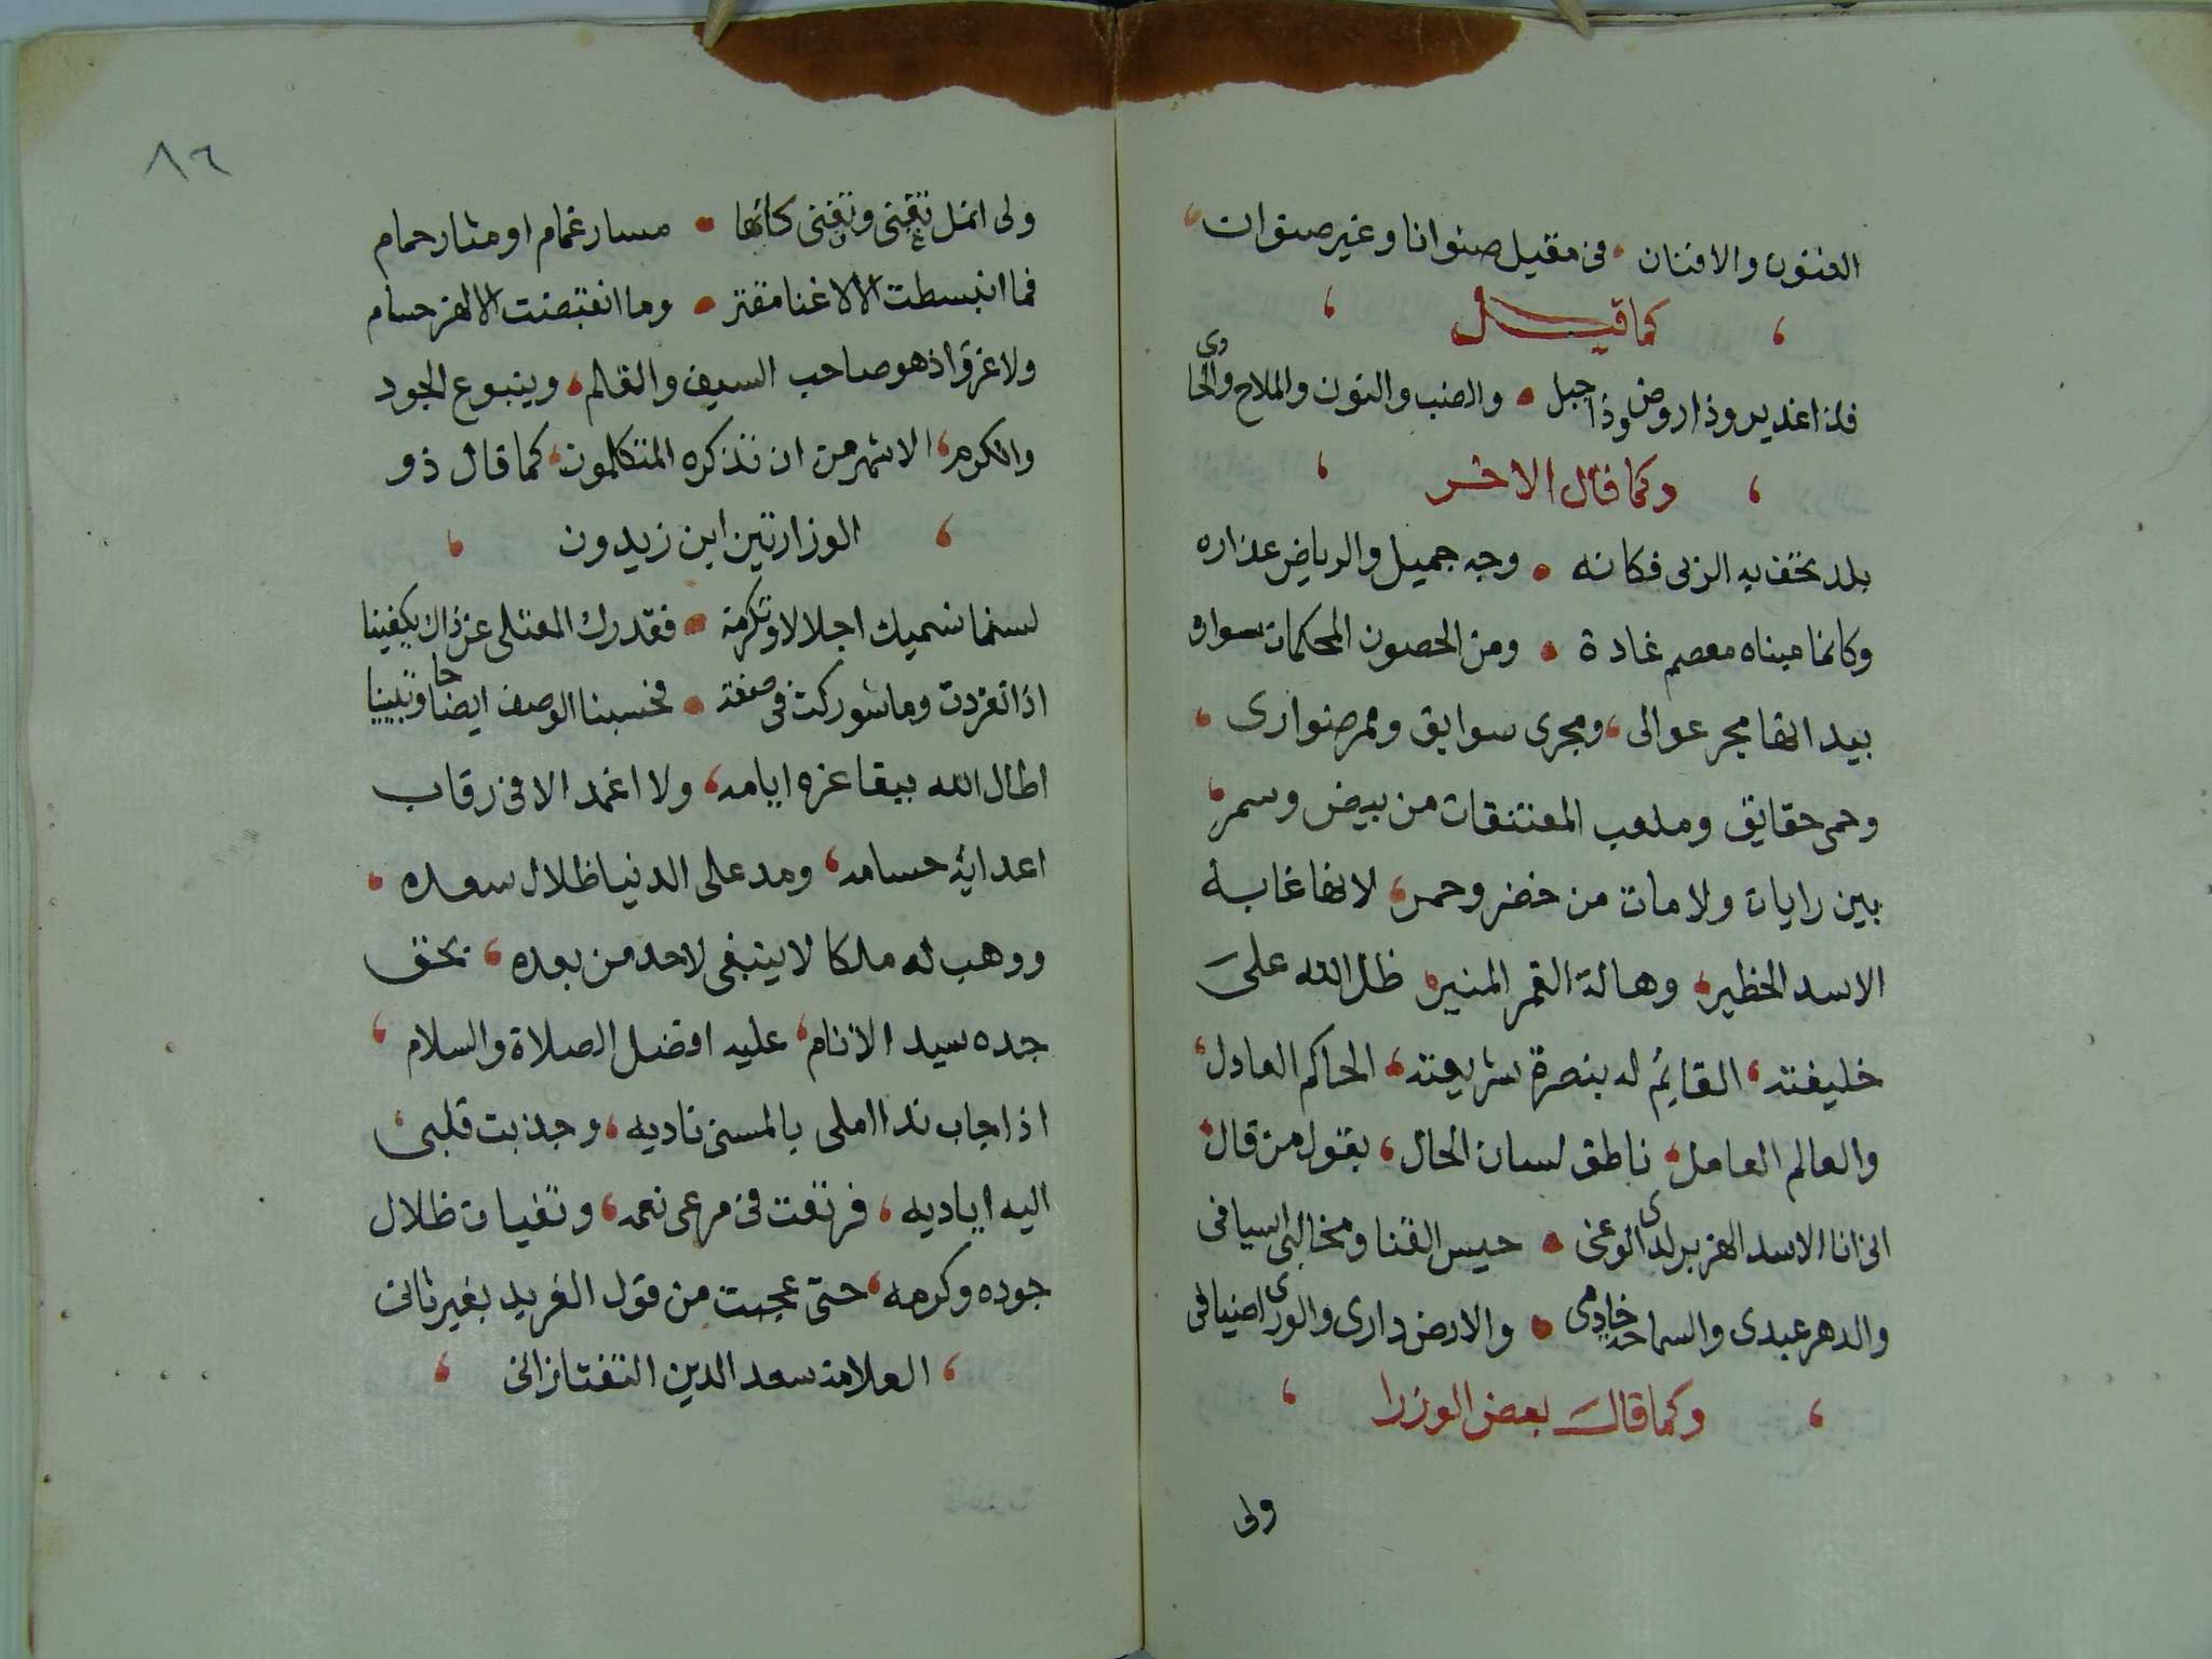 الفنون والافنان في مقيل صنوانا وغير صنوان
كما قيل
فذا غدير وذا روض وذا جبل والضب والنون والملاح والحادى
وكما قال الاخر
بلد تحف به الربى فكانه وجه جميل والرياض عذاره
وكانما ميناه معصم غادة ومن الحصون المحكمات سواره
بيد انها مجر عوالى، ومجرى سوابق وممر ضوارى
وحمى حقايق وملعب المعتنقات من بيض وسمر
بين رايات ولامات من خضر وحمر، لانها غابة
الاسد الخطير، وهالة القمر المنير ظل الله على
خليفته، القايم له بنصرة شريعته، الحاكم العادل،
والعالم العامل، ناطق لسان الحال، بقول من قال
انى انا الاسد الهزبر لدى الوغى حيس القنا ومخالبى اسيافى
والدهر عبدى والسماحة خادمى والارض دارى والورى اضيافى
وكما قال بعض الوزرا
ولى
٨٦
ولى انمل تغنى وتفنى كانها مسار غمام او مثار حمام
فما انبسطت الا لاغنا مقتر وما انقبضت الا لهز حسام
ولا غرو اذ هو صاحب السيف والقلم، وينبوع الجود
والكرم، الاشهر من ان تذكره المتكلمون، كما قال ذو
الوزارتين ابن زيدون
لسنا نسميك اجلالا وتكرمة فقدرك المعتلى عن ذاك يكفينا
اذا نفردت وما شوركت فى صفة فحسبنا الوصف ايضاحا وتبيينا
اطال الله ببقا عزه ايامه، ولا اغمد الا في رقاب
اعدايه حسامه، ومد على الدنيا ظلال سعده
ووهب له ملكا لا ينبغى لاحد من بعده، بحق
جده سيد الانام، عليه افضل الصلاة والسلام،
اذ اجاب ندا املى بالمسنى ناديه، وجذبت قلبى
اليه اياديه، فرتعت في مرعى نعمه، وتفيات ظلال
جوده وكرمه، حتى عجبت من قول الفريد بغير ثانى
العلامة سعد الدين التفتازانى